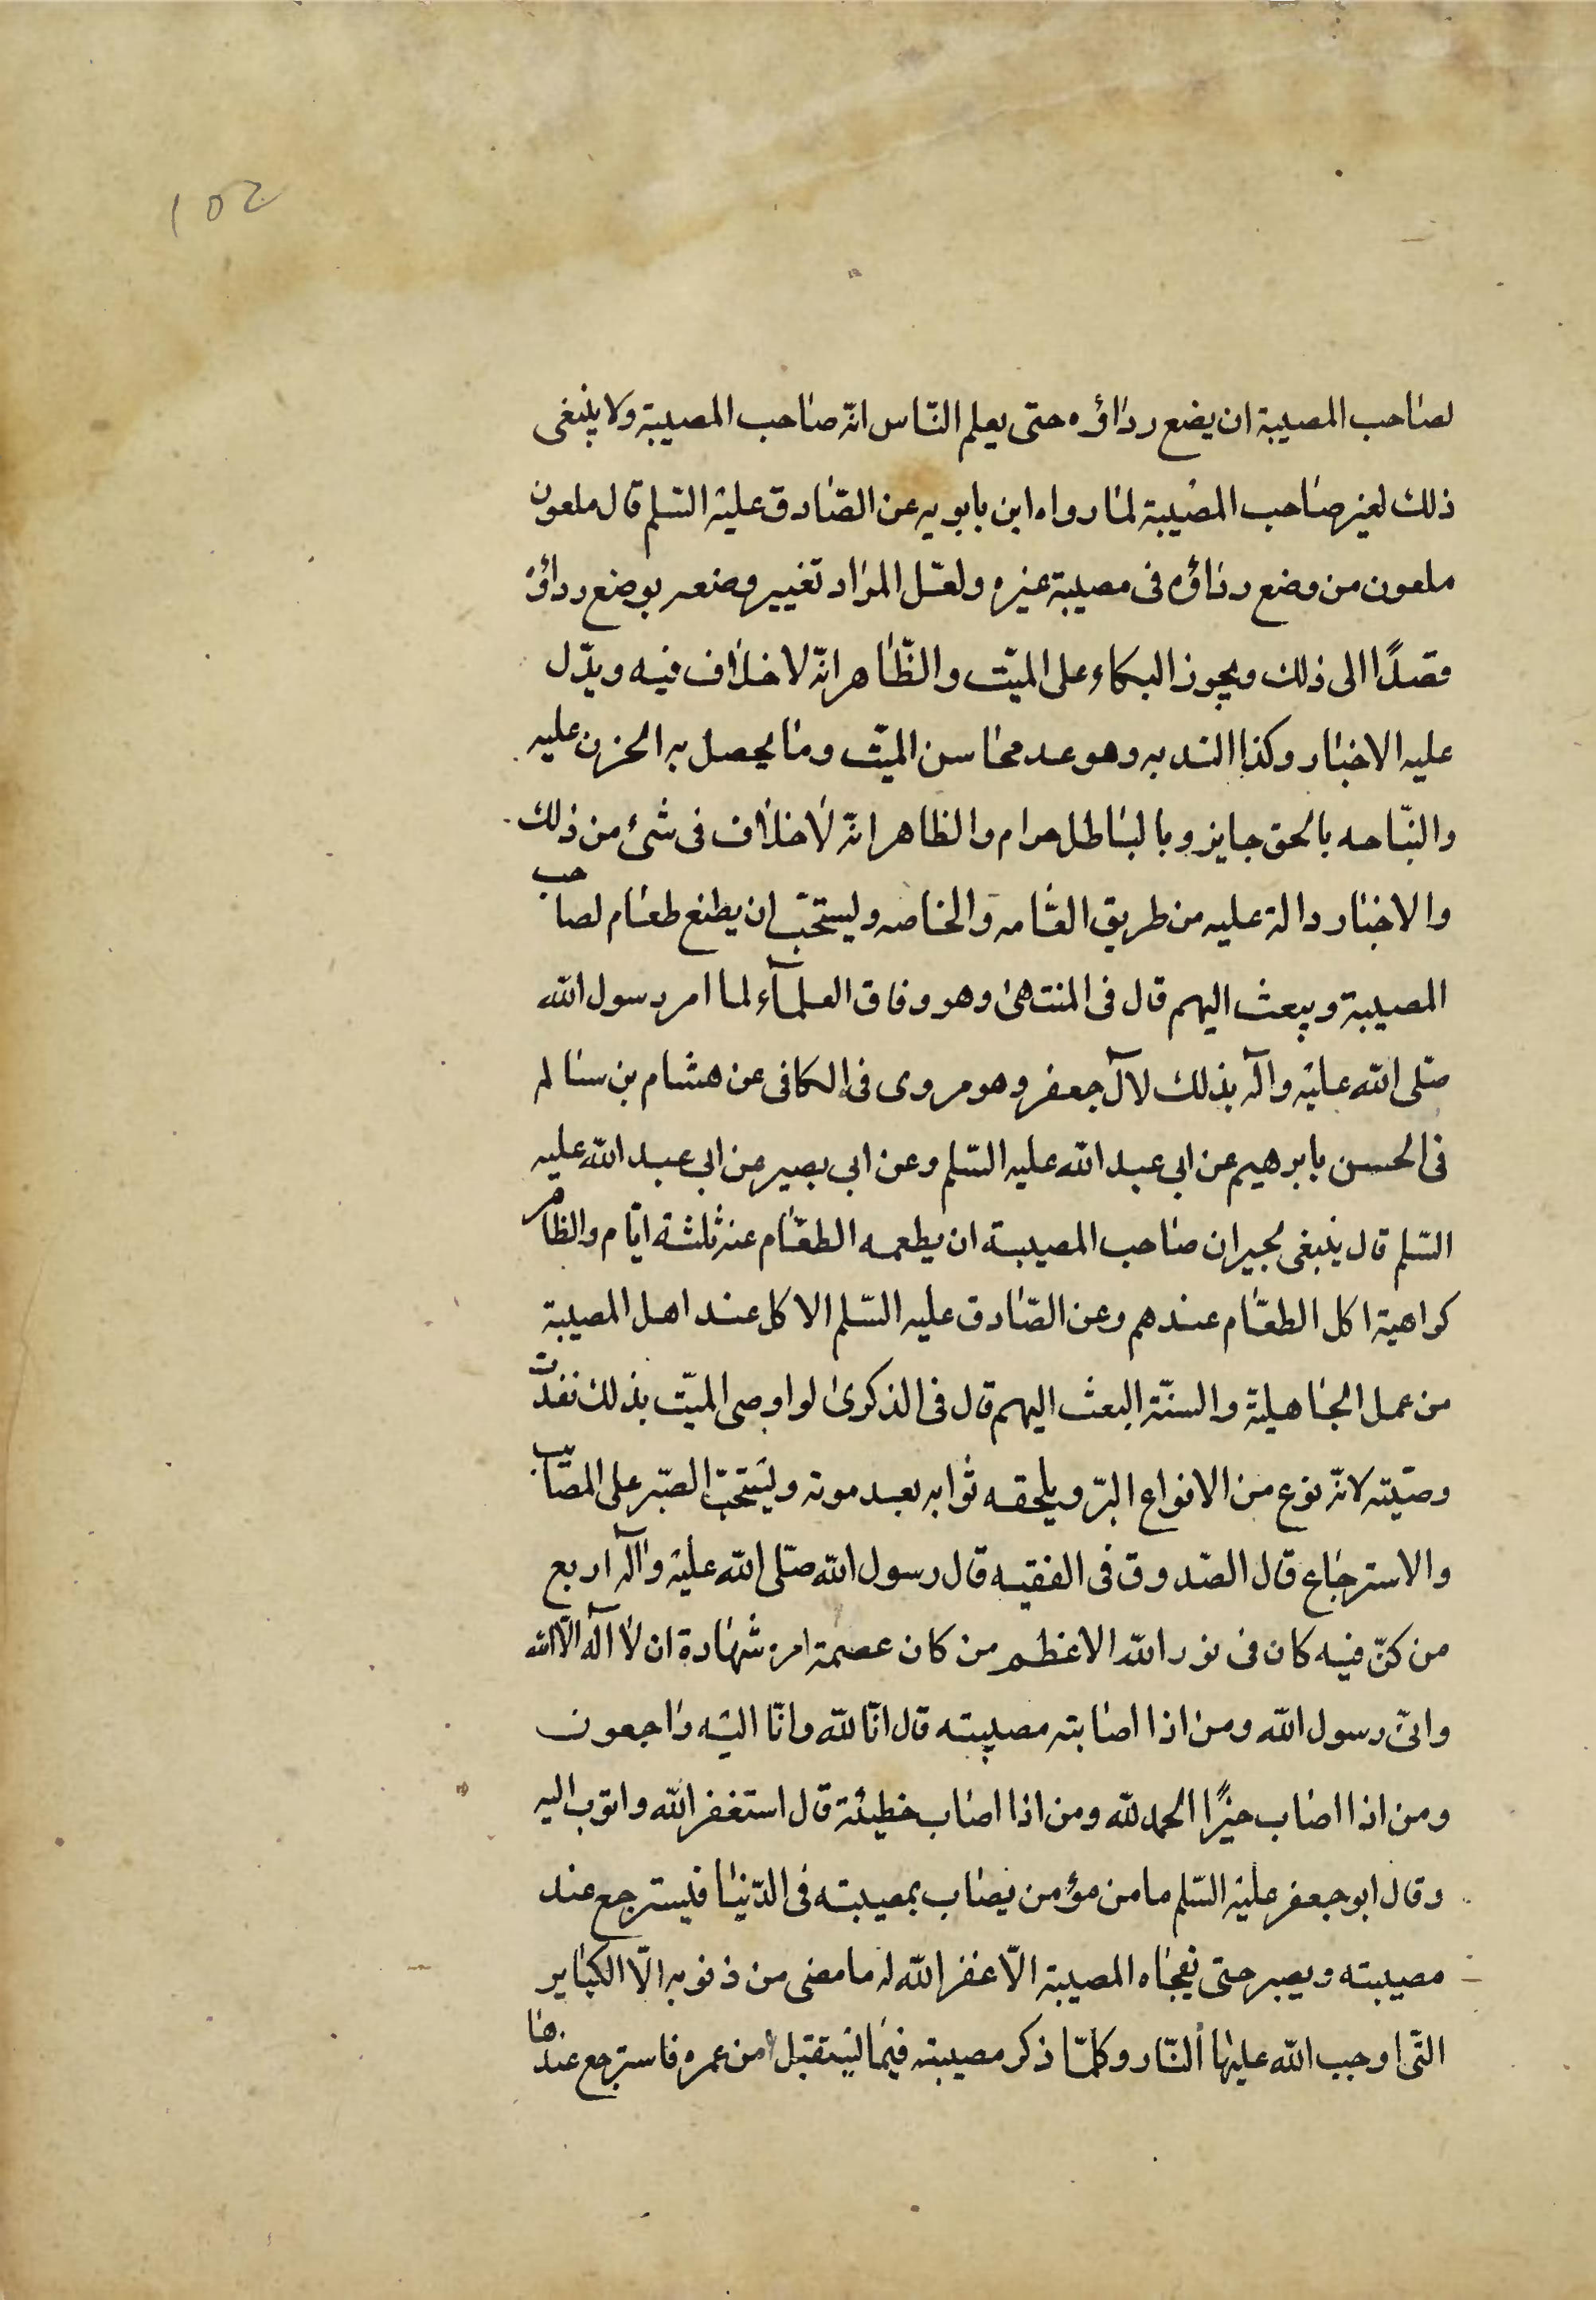 102
لصاحب المصيبة ان يضع رداؤه حتى يعلم النّاس انّه صاحب المصيبة ولا ينبغى
ذلك لغير صاحب المصيبة لما رواه ابن بابويه عن الصّادق عليه السّلم قال ملعون
ملعون من وضع رداؤه فى مصيبة غيره ولعّل المراد تغيير وضعه بوضع رداؤه
قصدًا الى ذلك ويجوز البكاء على الميّت والظّاهر انّه لا خلاف فيه ويدّل
عليه الاخبار وكذا الندبه وهو عد محاسن الميّت وما يحصل به الحزن عليه
والنّياحه بالحق جايز وبالباطل حرام والظاهر انّه لا خلاف فى شئ من ذلك
والاخبار دالة عليه من طريق العّامه والخاصه وليستحبّ ان يطنع طعام لصاحب
المصيبة ويبعث اليهم قال فى المنتهىٰ وهو وفاق العلمآء لما امر رسول الله
صّلى الله عليه وآله بذلك لآل جعفر وهو مروى فى الكافى عن هشام بن سالم
فى الحسن بابرهيم عن ابى عبد الله عليه السّلم وعن ابى بصير عن ابى عبد الله عليه
السّلم قال ينبغى لجيران صاحب المصيبة ان يطعمه الطعّام عنه ثلثة ايّام والظاهر
كواهية اكل الطعّام عندهم وعن الصّادق عليه السّلم الاكل عند اهل المصيبة
من عمل الجاهلية والسنّة البعث اليهم قال فى الذكرىٰ لو اوصى الميّت بذلك نفدّت
وصّيته لانّه نوع من الانواع البرّ ويلحقه ثوابه بعد موته وليستحبّ الصّبر على المصّايب
والاسترجاع قال الصّدوق فى الفقيه قال رسول الله صّلى الله عليه وآله اربع
من كنّ فيه كان فى نور الله الاعظم من كان عصمة امره شهادة ان لا اله الّا الله
وانّى رسول الله ومن اذا اصابته مصيبته قال انّا لله وانّا اليه راجعون
ومن اذا اصاب خيرًا الحمد لله ومن اذا اصاب خطيئة قال استغفر الله واتوب اليه
وقال ابو جعفر عليه السّلم ما من مؤمن يصاب بمصيبته فى الدّنيا فيسترجع عند
مصيبته ويصبر حتى نفجاه المصيبة الّا غفر الله له ما مضى من ذنوبه الّا الكباير
التّى اوجب الله عليها النّار وكلّما ذكر مصيبته فيما ليستقبل من عمره فاسترجع عندها